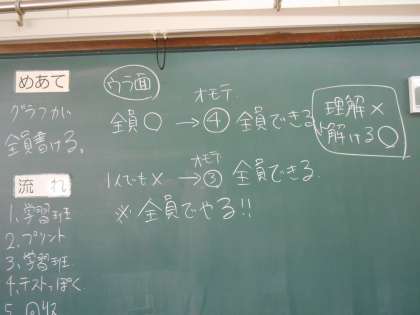 めあて
グラフがい
全員書ける。
流れ
1、学習班
2、プリント
3、学習班
4、テストっぽく
ウラ面
全員○ → オモテ ④ 全員できる
1人でも× → オモテ ③ 全員できる
※全員でやる!!
理解×
解ける○